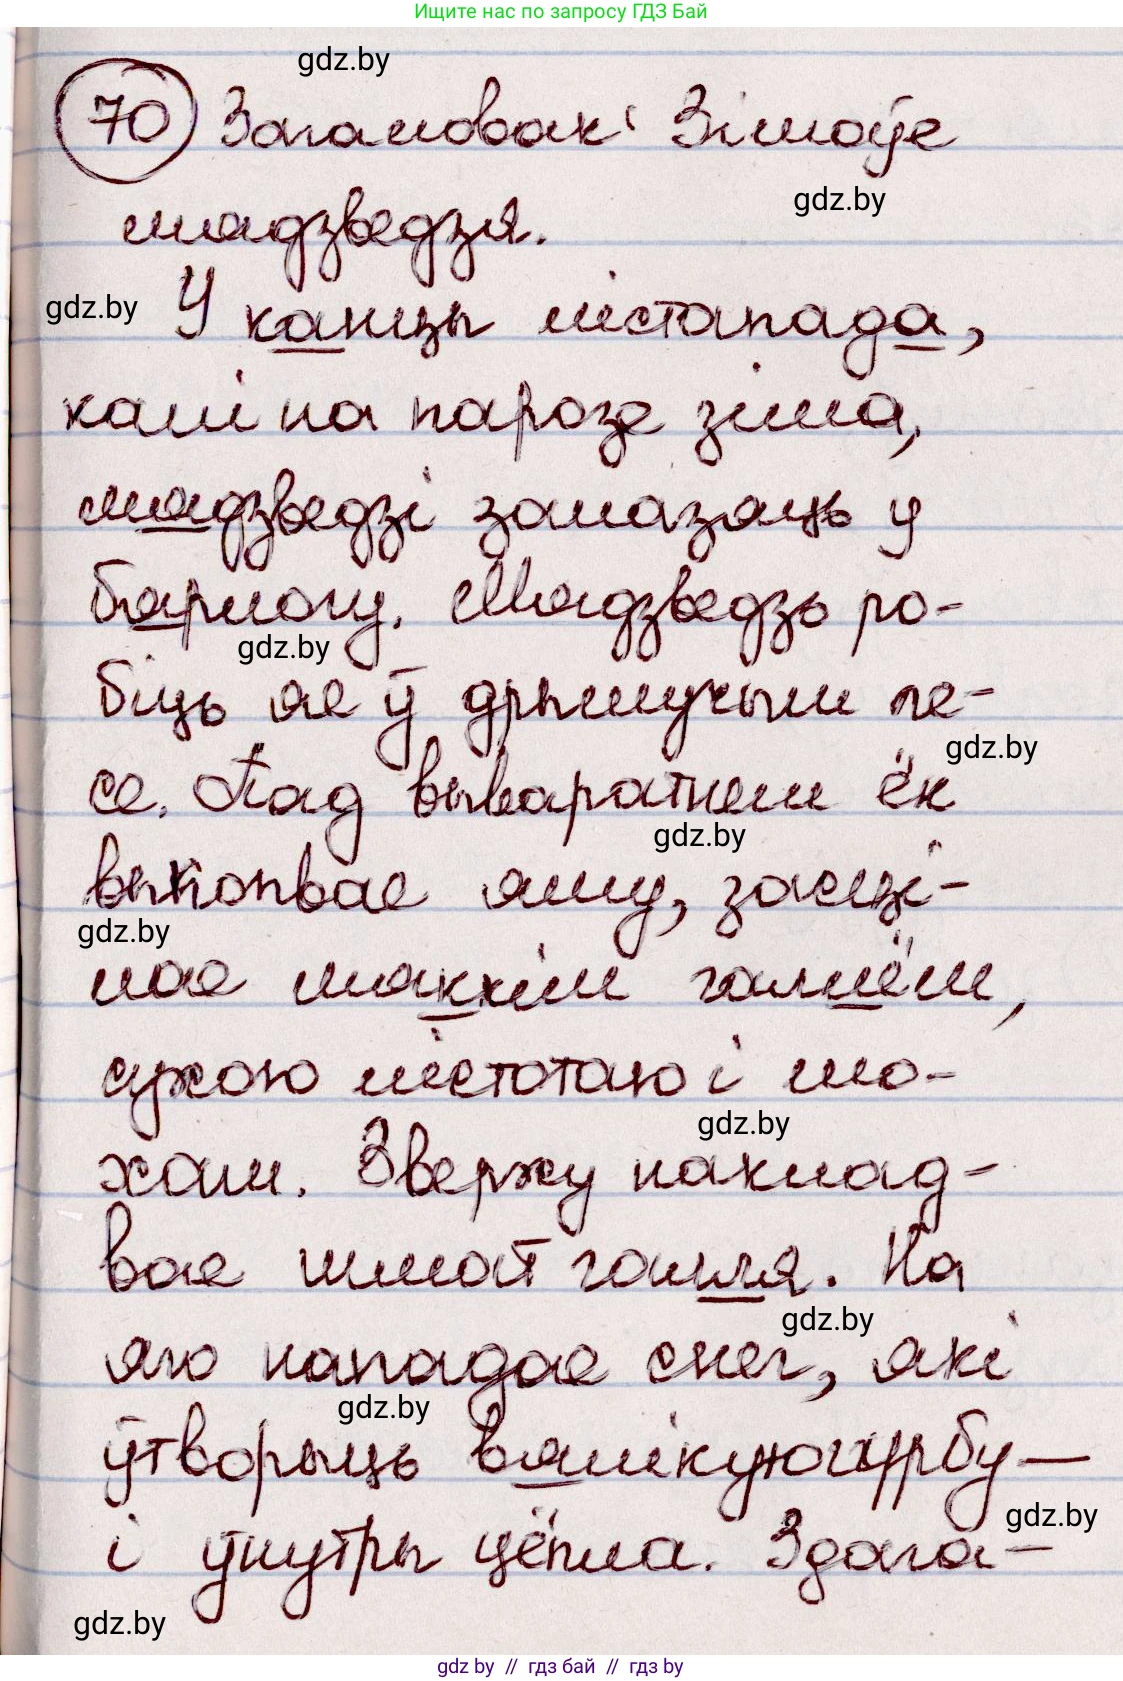 Ищите нас по запросу ГДЗ Бай
gdz.by
70 Загаловак: Зімоўе
gdz.by
мядзведзя.
gdz.by
У канцы лістапада,
калі на парозе зіма,
мядзведзі залазяць у
бярлогу. Мядзведзь ро-
gdz.by
біць яе ў дрымучым ле-
gdz.by
се. Пад вываратнем ён
gdz.by
выкопвае яму, засці-
gdz.by
лае мяккім галлём,
сухою лістотаю і мо-
gdz.by
хам. Зверху наклад-
вае шмат галля. На
gdz.by
яго нападае снег, які
gdz.by
ўтворыць вялікую гурбу —
gdz.by
і ўнутры цёпла. Здага-
gdz.by
gdz by // гдз бай // gdz by